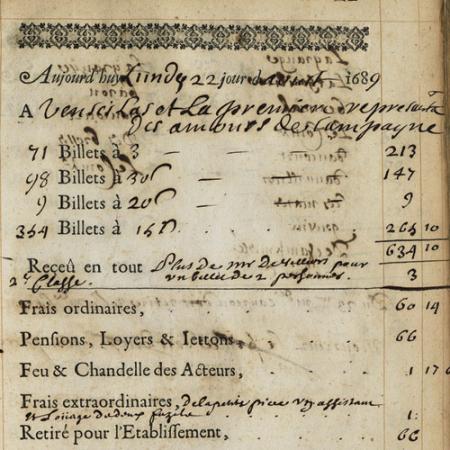 Aujourd'huy Lundy 22 jour d'Aoust 1689
A Vencislas et La premiere represent.
Des amours de Campagne
71 Billets à 3 — — — 213
98 Billets à 30s — — 147
9 Billets à 20s — — 9
354 Billets à 15s . . 265 10
634 10
Receû en tout Plus de mr De pour 3
2e Classe. un billet de 2 personnes.
Frais ordinaires, 60 14
Pensions, Loyers & Iettons, 66
Feu & Chandelle des Acteurs, 1 17 6
Frais extraordinaires, de la petite piece un assistant
et Louage de deux 1
Retiré pour l'Etablissement, 66